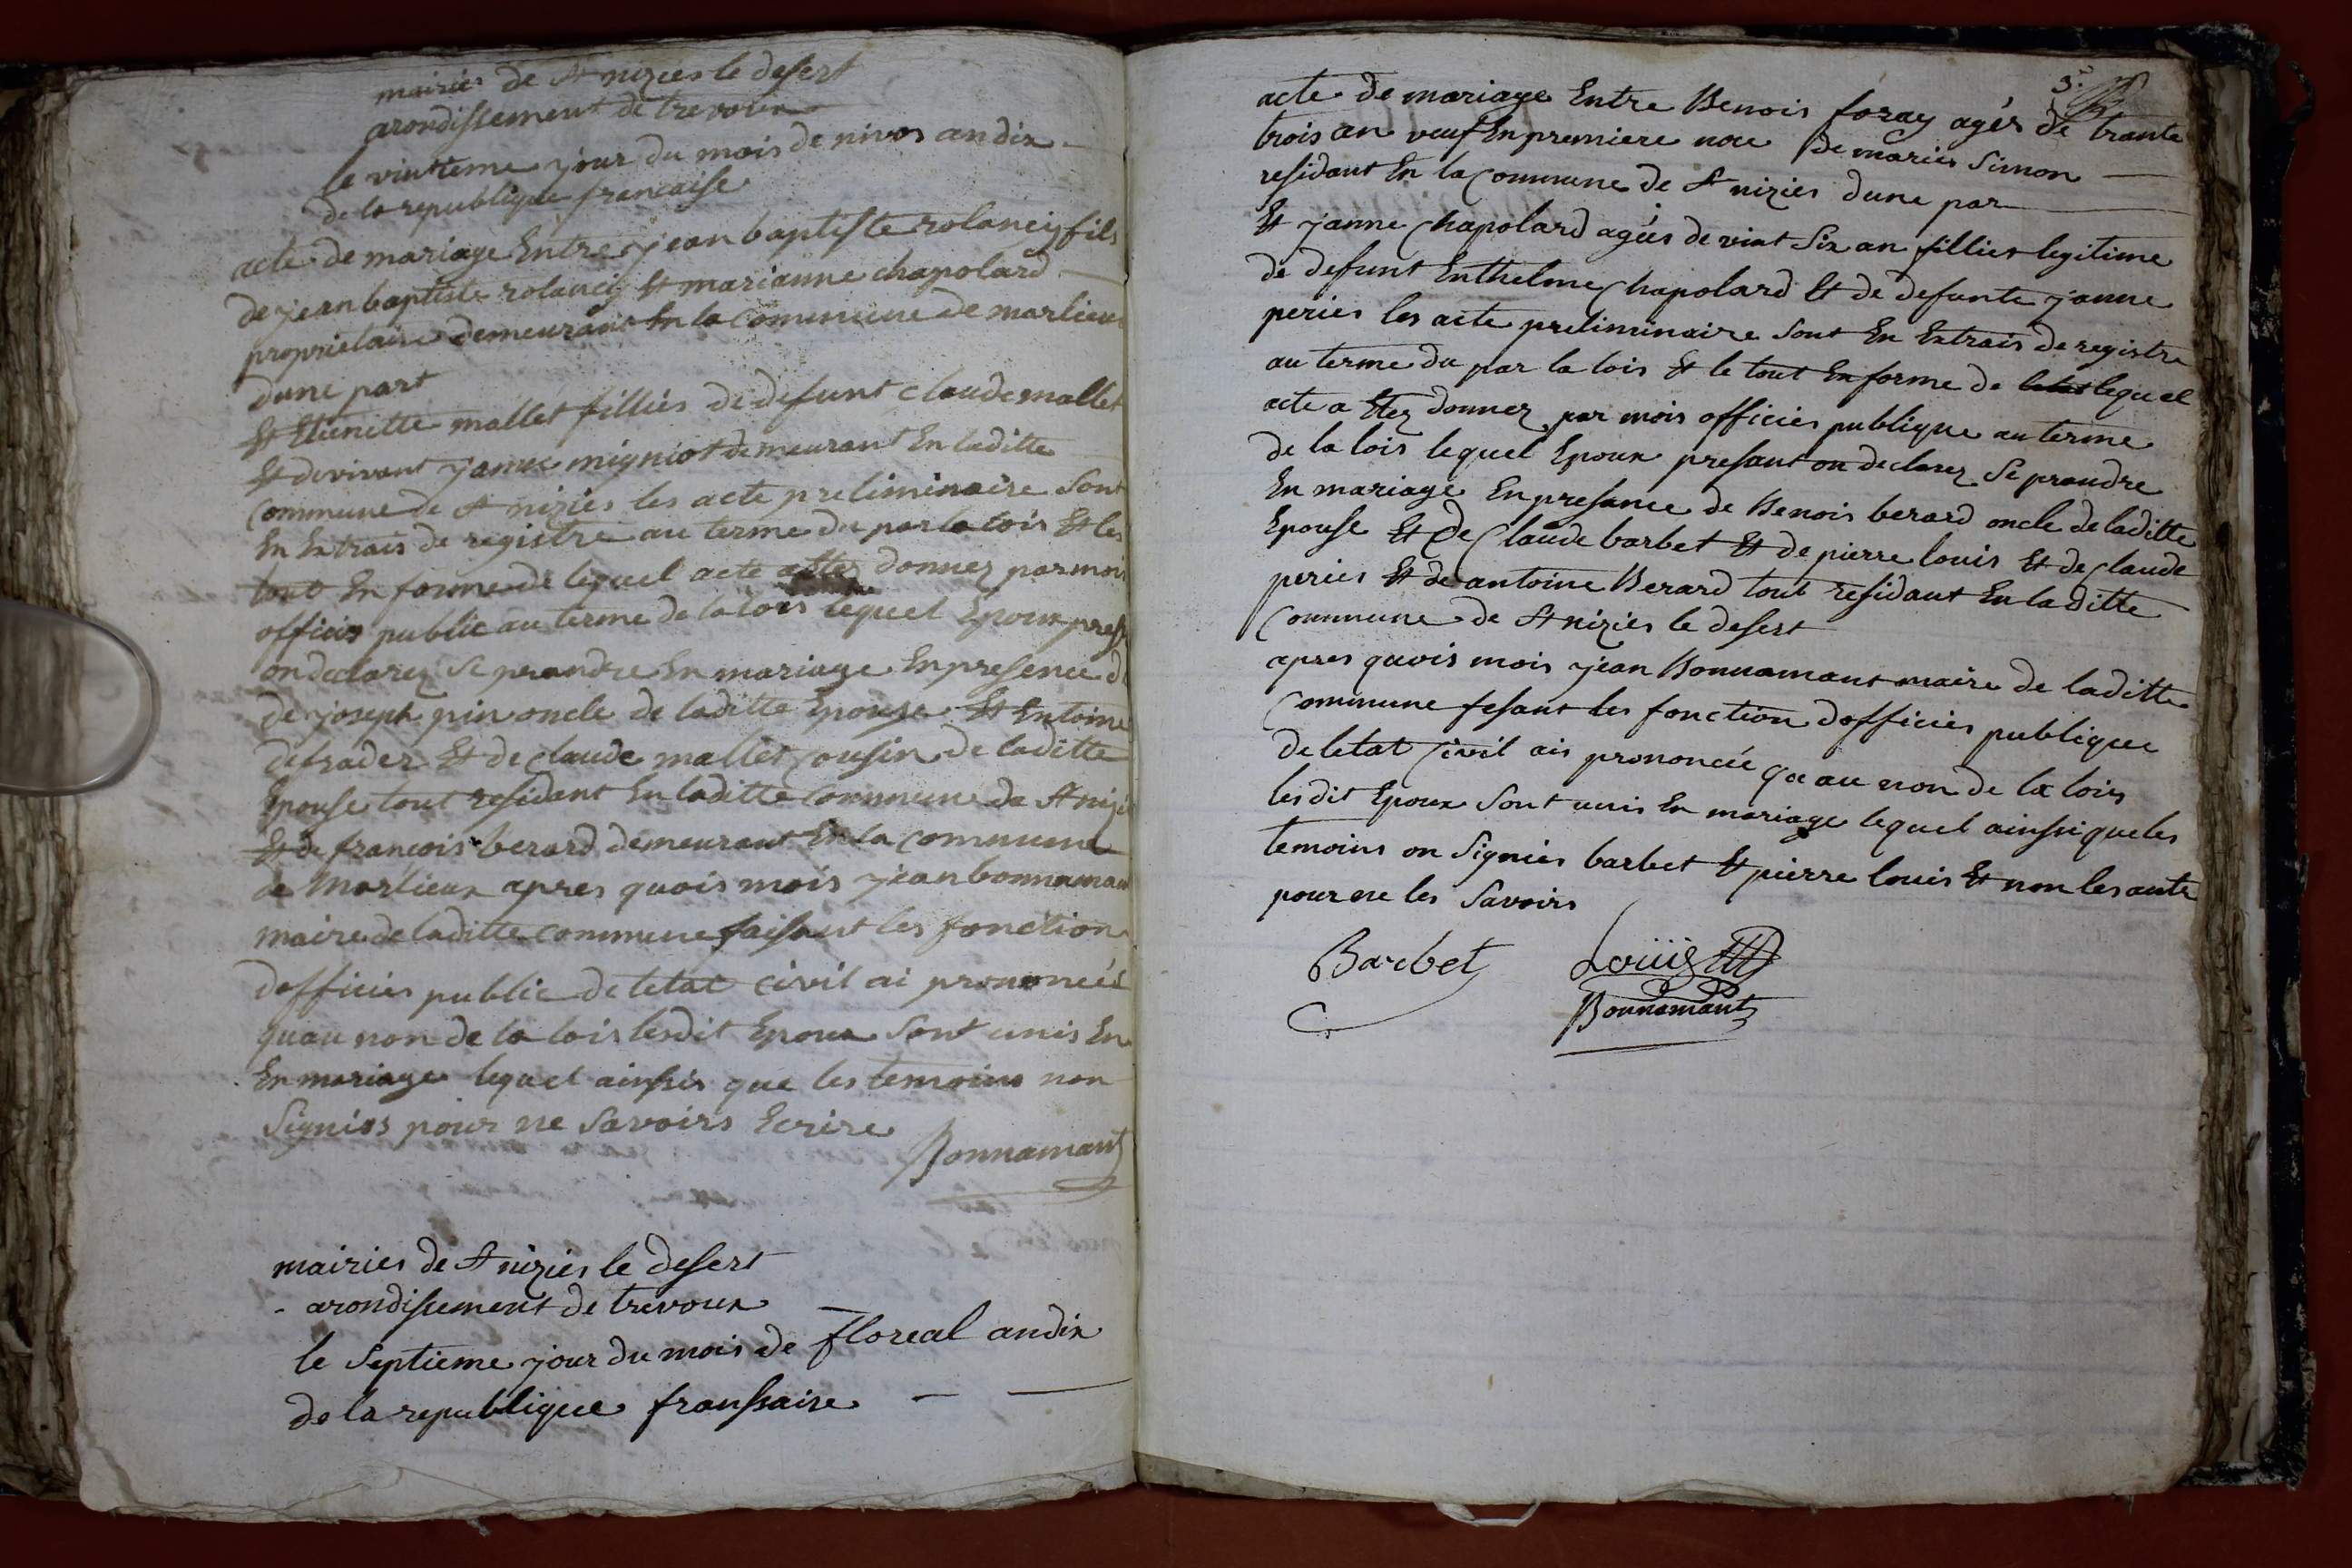 mairies de St nizies le desert
arondissement de trevoux
le vintieme jour du mois de nivos an dix
de la republique francaise
acte de mariage Entre jean baptiste rolancy fils
de jean baptiste rolancy Et marianne chapolard
proprietaire demeurant En la commune de marlieux
dune part
Et Etienette mallet fillies de defunt claude mallet
Et de vivant janne migniot demeurant En laditte
Commune de St nizies les acte preliminaire Sont
En Extrais de registre au terme du par la lois Et les
tout En forme de lequel acte a Etez donnez par mois
officies public au terme de la lois lequel Epoux pres
on declarez Se prandre En mariage En presence d
de joseph pin oncle de laditte Epouse Et Entoine
defrader Et de Claude mallet Cousin de laditte
Epouse tout residant En laditte Commune de St nizi
Et de francois berard demeurant En la Commune
de Marlieux apres quois mois jean bonnaman
maire de laditte commune faisant les fonction
dofficies public de letat civil ai prononcés
quau non de la lois lesdit Epoux Sont unis En
En mariage lequel ainssis que les temoins non
Signies pour ne Savoirs Ecrire
Bonnamant
mairies de St nizies le desert
arondissement de trevoux
le Septieme jour du mois de floreal an dix
de la republique franssaise
3.
acte de mariage Entre Benois foray agés de trante
trois an veuf En premiere noce de maries Simon
residant En la Commune de St nizies dune par
Et janne Chapolard agées de vint Six an fillies legitime
de defunt Enthelme Chapolard Et de defunte janne
peries les acte preliminaire Sont En Extrais de registre
au terme du par la lois Et le tout En forme de lequel
acte a Etez donnez par mois officies publique au terme
de la lois lequel Epoux presant on declarez Se prandre
En mariage En presance de Benois berard oncle de laditte
Epouse Et de Claude barbet Et de pierre louis Et de Claude
peries Et de antoine Berard tout residant En laditte
Commune de St nizies le desert
apres quois mois jean Bonnamant maire de laditte
Commune fesant les fonction dofficies publique
de letat Civil ais prononcée qu au non de la lois
lesdit Epoux Sont unis En mariage lequel ainssi que les
temoins on Signies barbet Et pierre louis Et non les autre
pour ne les Savoirs
Barbet Loüis
Bonnamant